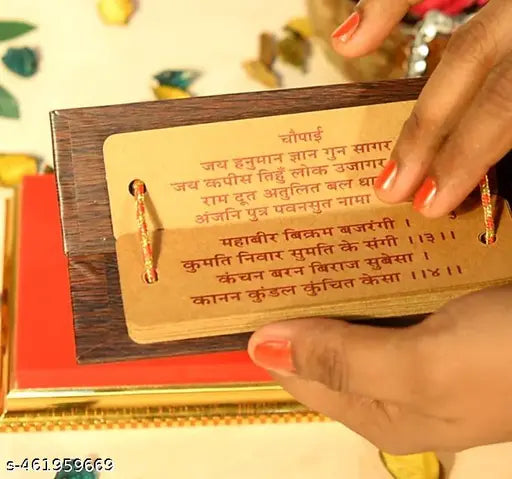 चौपाई
जय हनुमान ज्ञान गुन सागर
जय कपीस तिहुँ लोक उजागर
राम दूत अतुलित बल धा
अंजनि पुत्र पवनसुत नामा
महाबीर बिक्रम बजरंगी ।
कुमति निवार सुमति के संगी ।।३।।
कंचन बरन बिराज सुबेसा ।
कानन कुंडल कुंचित केसा ।।४।।
s-461959669